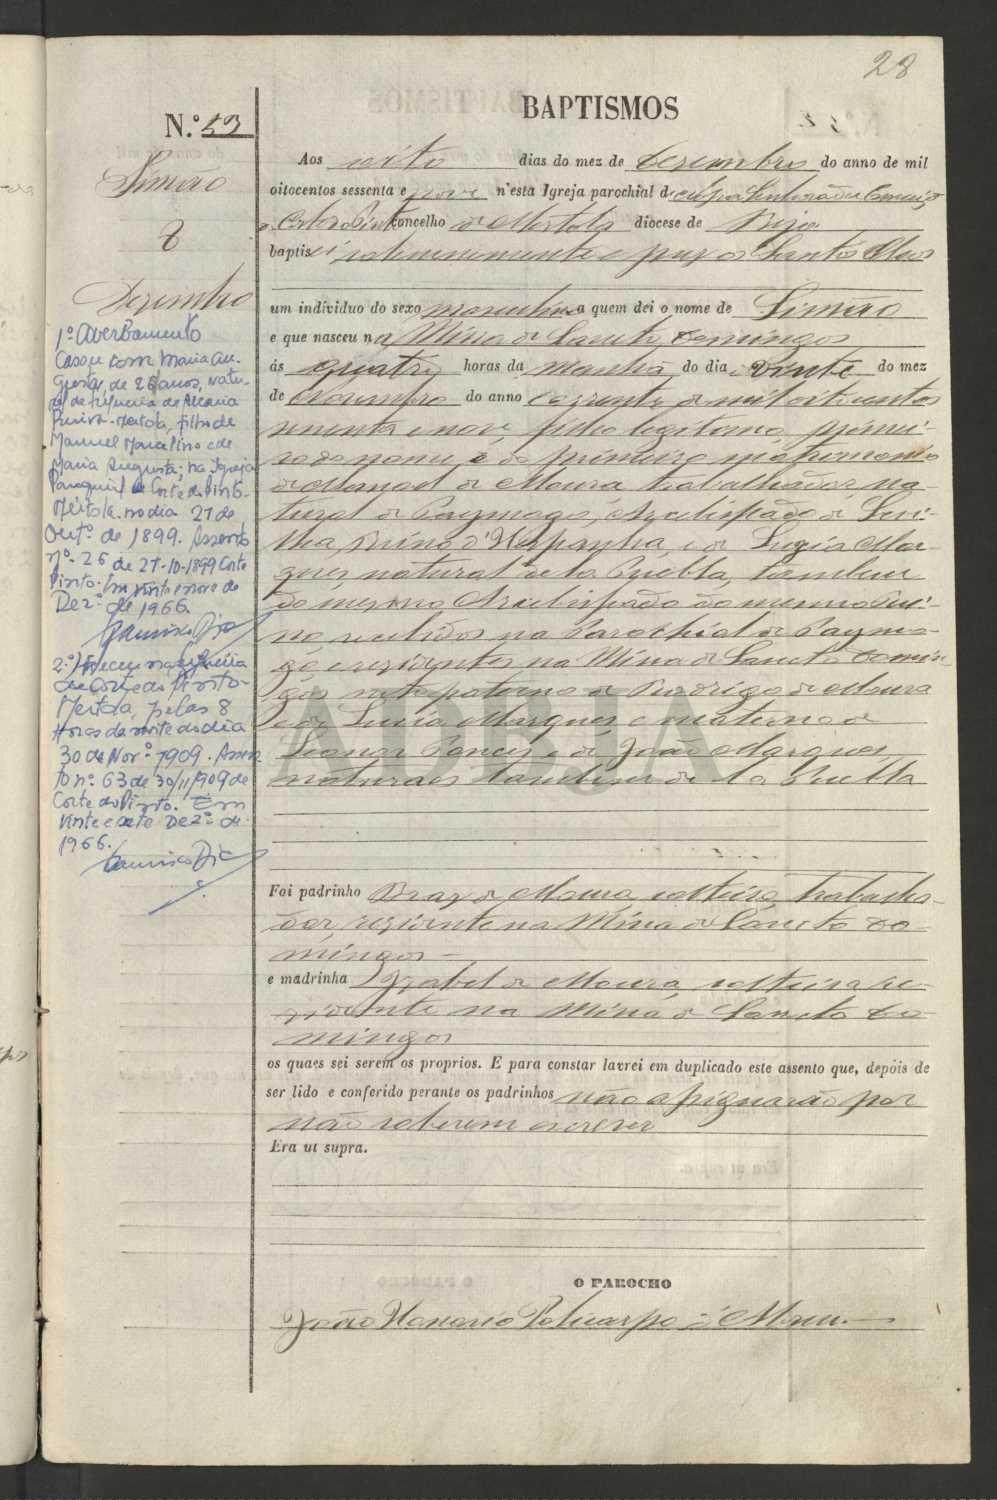 28
BAPTISMOS
N.º 53
Simão
8
Dezembro
Aos oito dias do mez de Dezembro do anno de mil
oitocentos sessenta e nove n'esta Igreja parochial de Nossa Senhora da Conceição
Corte do Pinto concelho de Mertola diocese de Beja
baptisei solemnemente e puz os Santos Oleos
um individuo do sexo masculino a quem dei o nome de Simão
e que nasceu na Mina de Sancto Domingos
ás quatro horas da manhã do dia vinte do mez
de Novembro do anno corrente de mil oitocentos
sessenta e nove, filho legitimo, primei-
ro do nome, e do primeiro matrimonio
de Manoel de Moura, trabalhador, na-
tural de Paymogo, Arcebispado de Sevi-
lha, Reino d'Hespanha, e de Luzia Mar-
ques, natural de la Puebla, tambem
do mesmo Arcebispado do mesmo Rei-
no, recebidos na Parochial de Paymo-
go, e residentes na Mina de Sancto Domin-
gos neto paterno de Rodrigo de Moura
e de Luzia Marques e materno de
Leonor Ponces, e de João Marques,
naturaes tambem de la Puebla
Foi padrinho Braz de Moura, solteiro, trabalha-
dor, rezidente na Mina de Sancto Do-
mingos
e madrinha Izabel de Moura, solteira re-
zidente na Mina de Sancto Do-
mingos
os quaes sei serem os proprios. E para constar lavrei em duplicado este assento que, depois de
ser lido e conferido perante os padrinhos não assignarão por
não saberem escrever
Era ut supra.
O PAROCHO
João Policarpo
1.º Averbamento
Casou com Maria Au-
gusta, de 26 anos, natu-
ral de freguesia de Santana
Mertola, filha de
Manuel Marcelino e de
Maria Augusta; na Igreja
Paroquial de Corte do Pinto-
Mértola no dia 21 de
Outº. de 1899. Assento
nº. 26 de 21-10-1899 Corte
Pinto. Em vinte e nove de
Dezº. de 1966.
2.º) Faleceu na freguesia
de Corte do Pinto-
Mertola, pelas 8
horas da noite do dia
30 de Novº. 1909. Assen
to nº. 63 de 30/11/909 de
Corte do Pinto. Em
vinte e sete Dezº. de
1966.
ADBJA